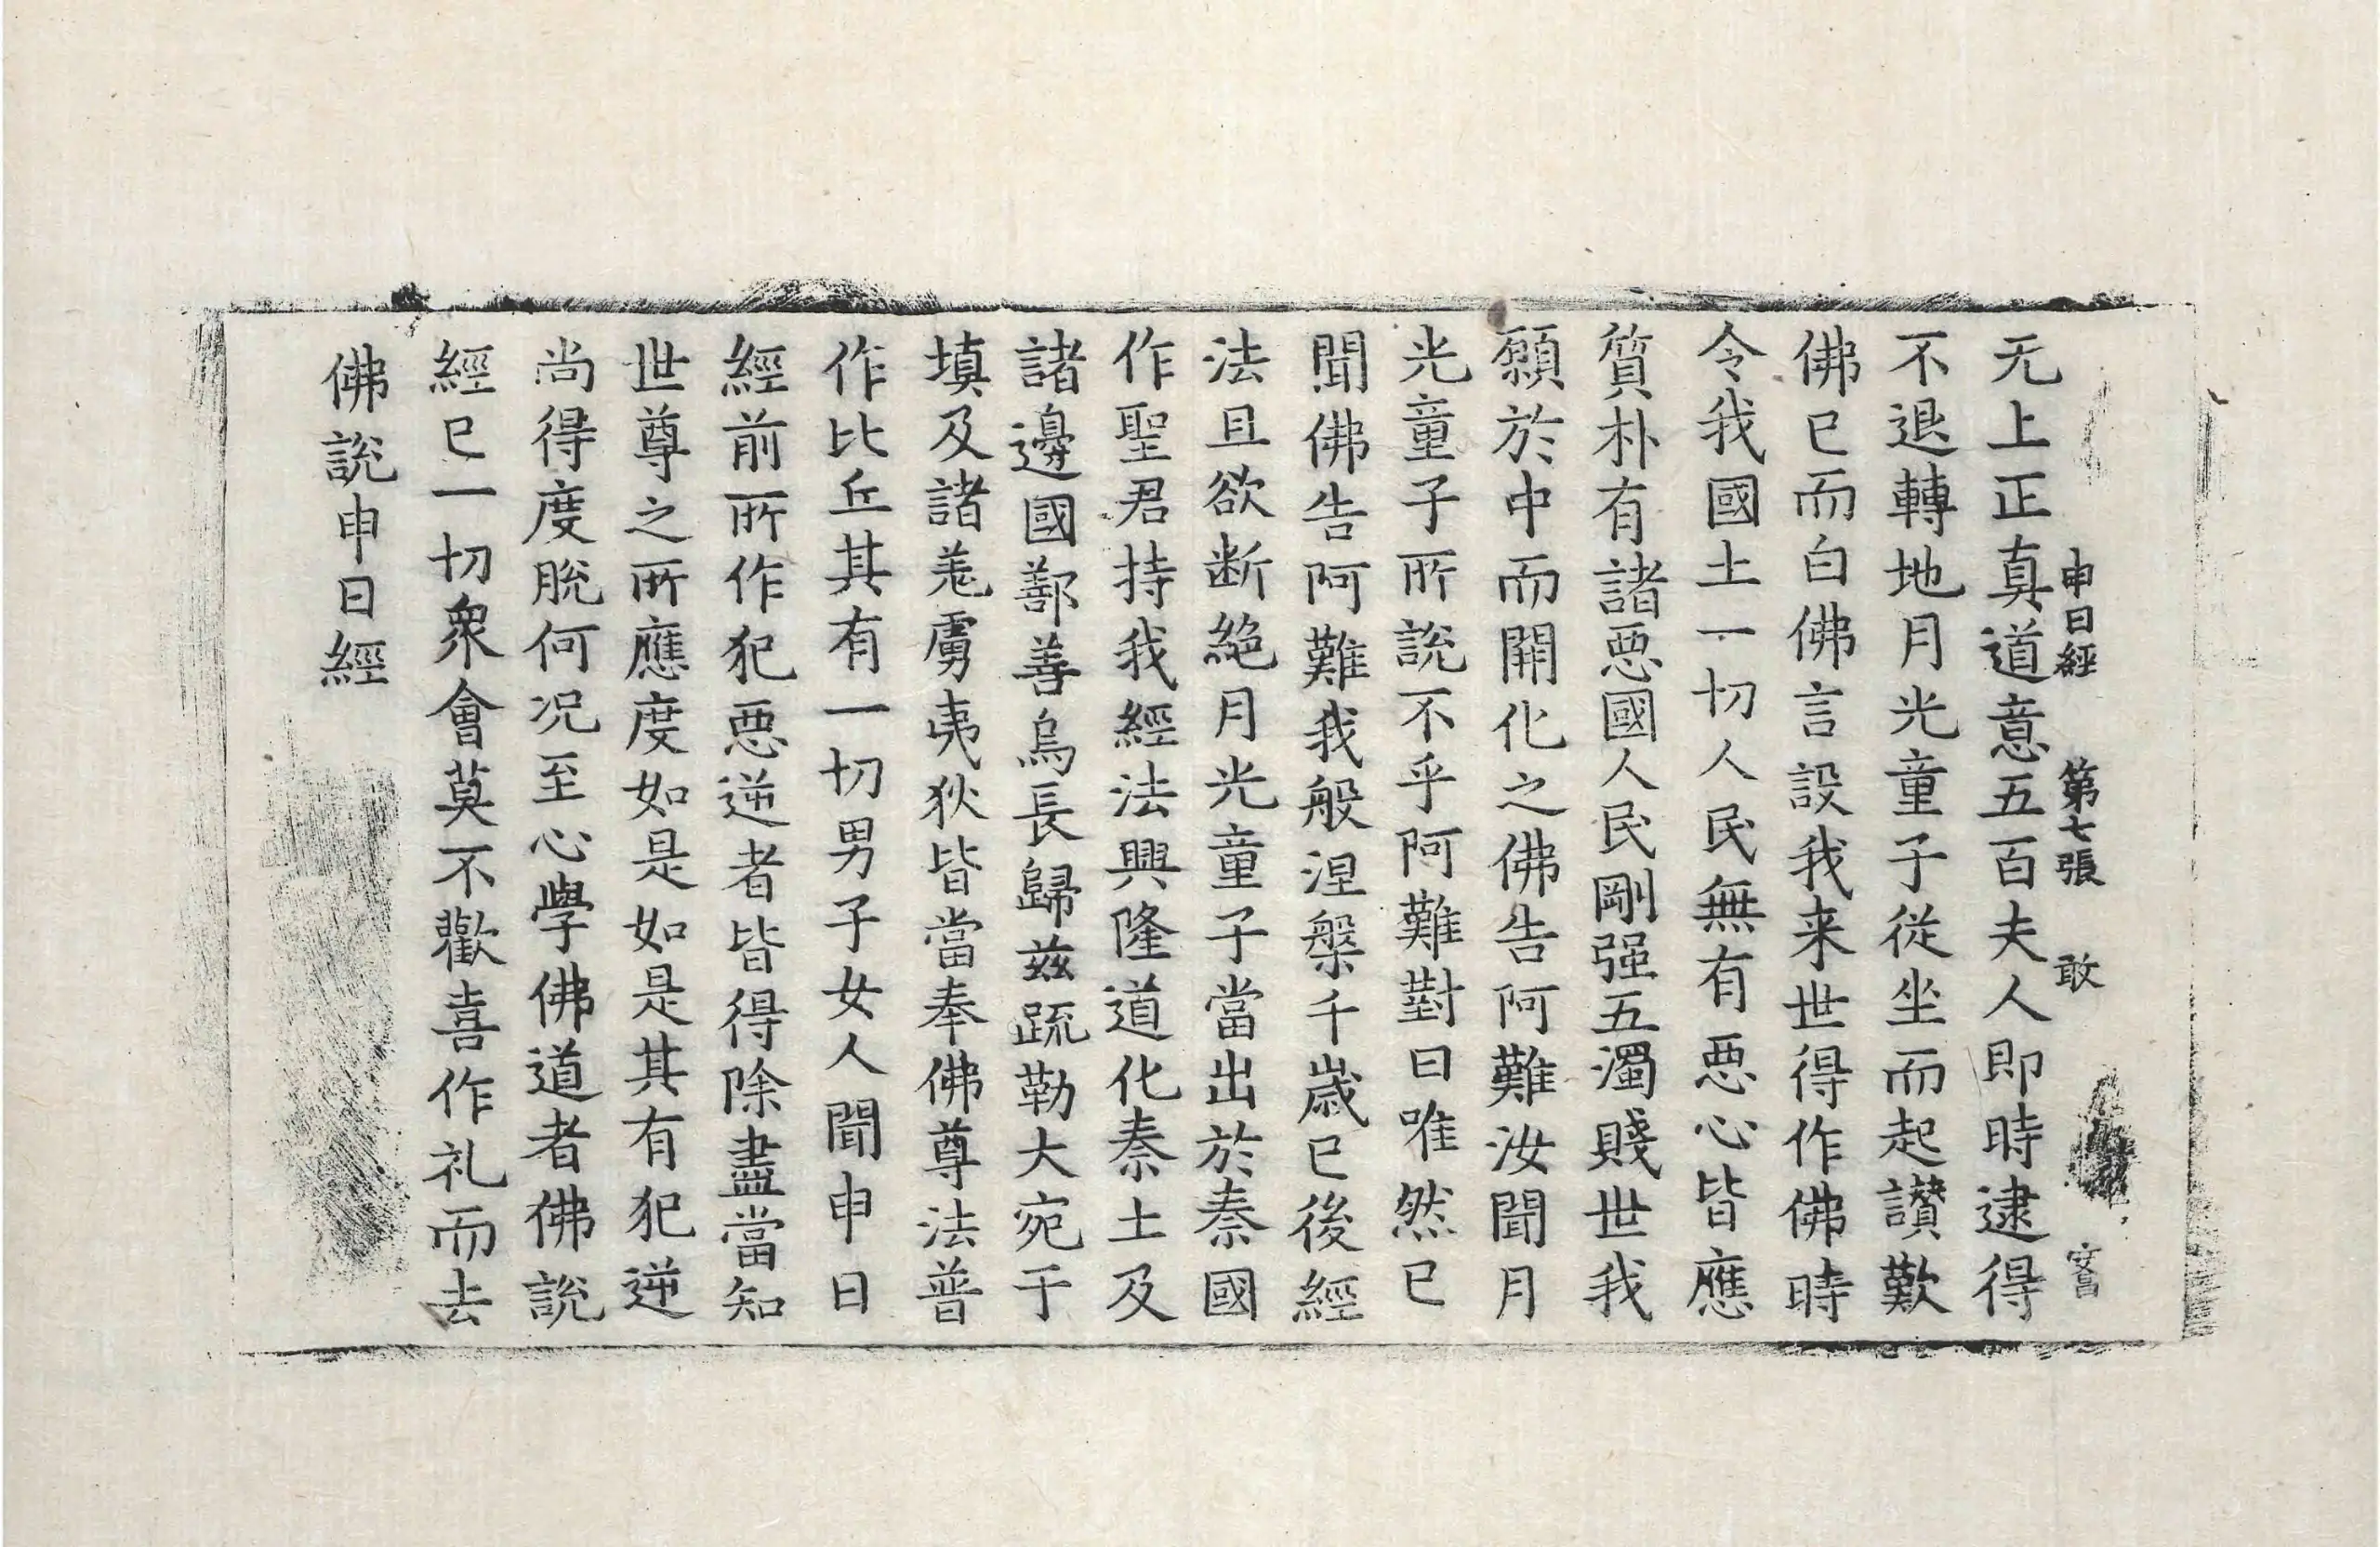 申日經 第七張 敢
无上正真道意五百夫人即時逮得
不退轉地月光童子從坐而起讃歎
佛已而白佛言設我来世得作佛時
令我國土一切人民無有惡心皆應
質朴有諸惡國人民剛强五濁賤世我
願於中而開化之佛告阿難汝聞月
光童子所說不乎阿難對曰唯然已
聞佛告阿難我般涅槃千歲已後經
法且欲断絕月光童子當出於秦國
作聖君持我經法興隆道化秦土及
諸邊國鄯善烏長歸兹踈勒大宛于
填及諸羌虜夷狄皆當奉佛尊法普
作比丘其有一切男子女人聞申日
經前所作犯惡逆者皆得除盡當知
世尊之所應度如是如是其有犯逆
尚得度脫何况至心學佛道者佛說
經已一切衆會莫不歡喜作礼而去
佛說申日經